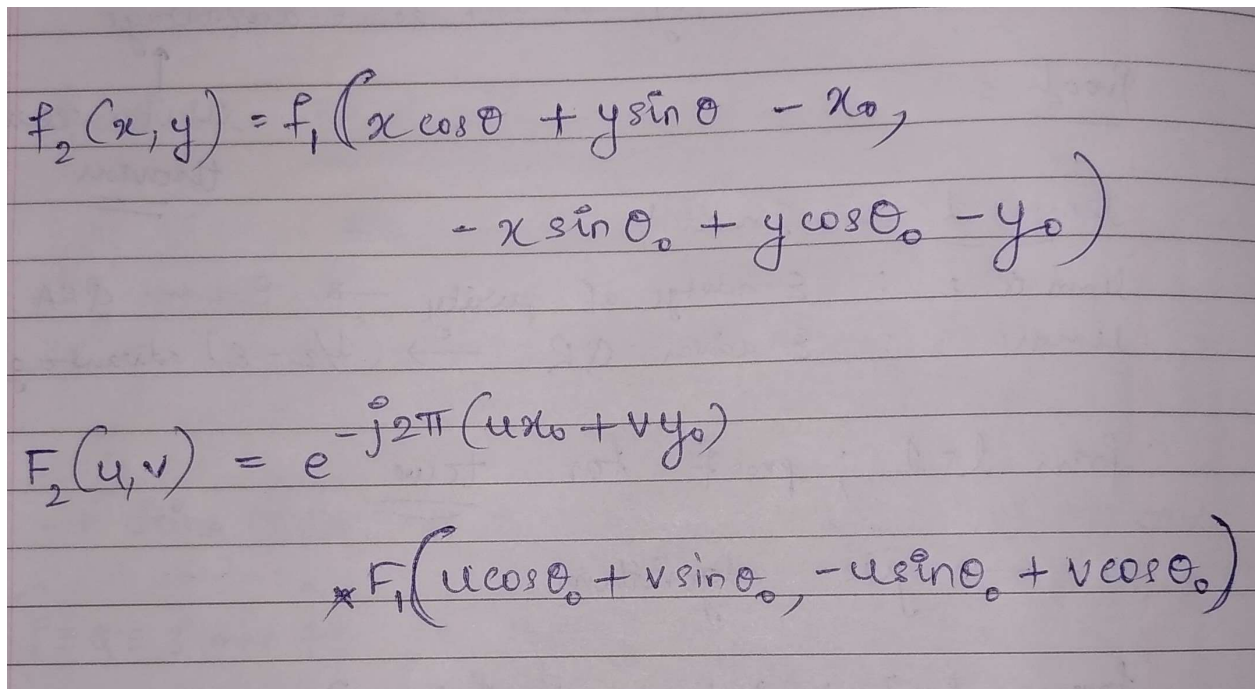 f₂(x, y) = f₁(x cosθ + y sinθ - x₀,
- x sinθ₀ + y cosθ₀ - y₀)
F₂(u, v) = e^{-j2π(ux₀ + vy₀)}
* F₁(u cosθ₀ + v sinθ₀, -u sinθ₀ + v cosθ₀)